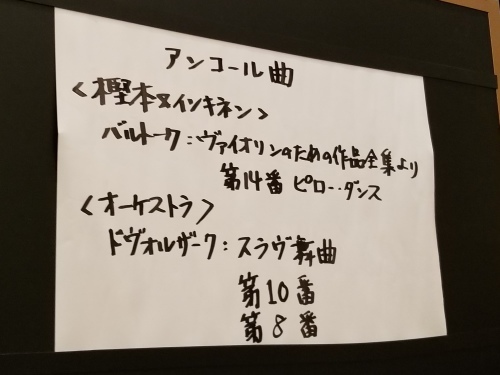 アンコール曲
<樫本×インキネン>
バルトーク:ヴァイオリンのための作品全集より
第14番 ピロー・ダンス
<オーケストラ>
ドヴォルザーク:スラヴ舞曲
第10番
第8番